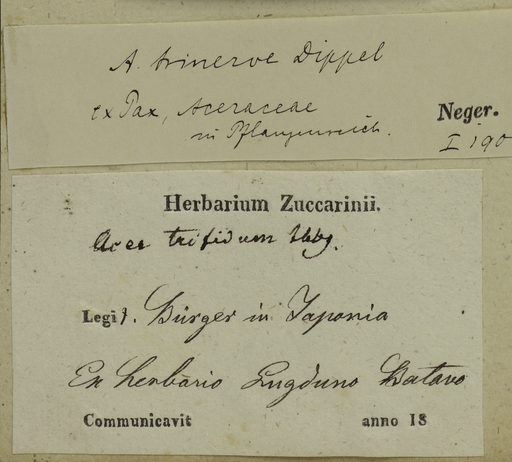 A. trinerve Dippel
ex Pax, Aceraceae
in Pflanzenreich.
Neger.
I 190
Herbarium Zuccarinii.
Acer trifidum Thbg.
Legit. Bürger in Japonia
Ex herbario Lugduno Batavo
Communicavit anno 18